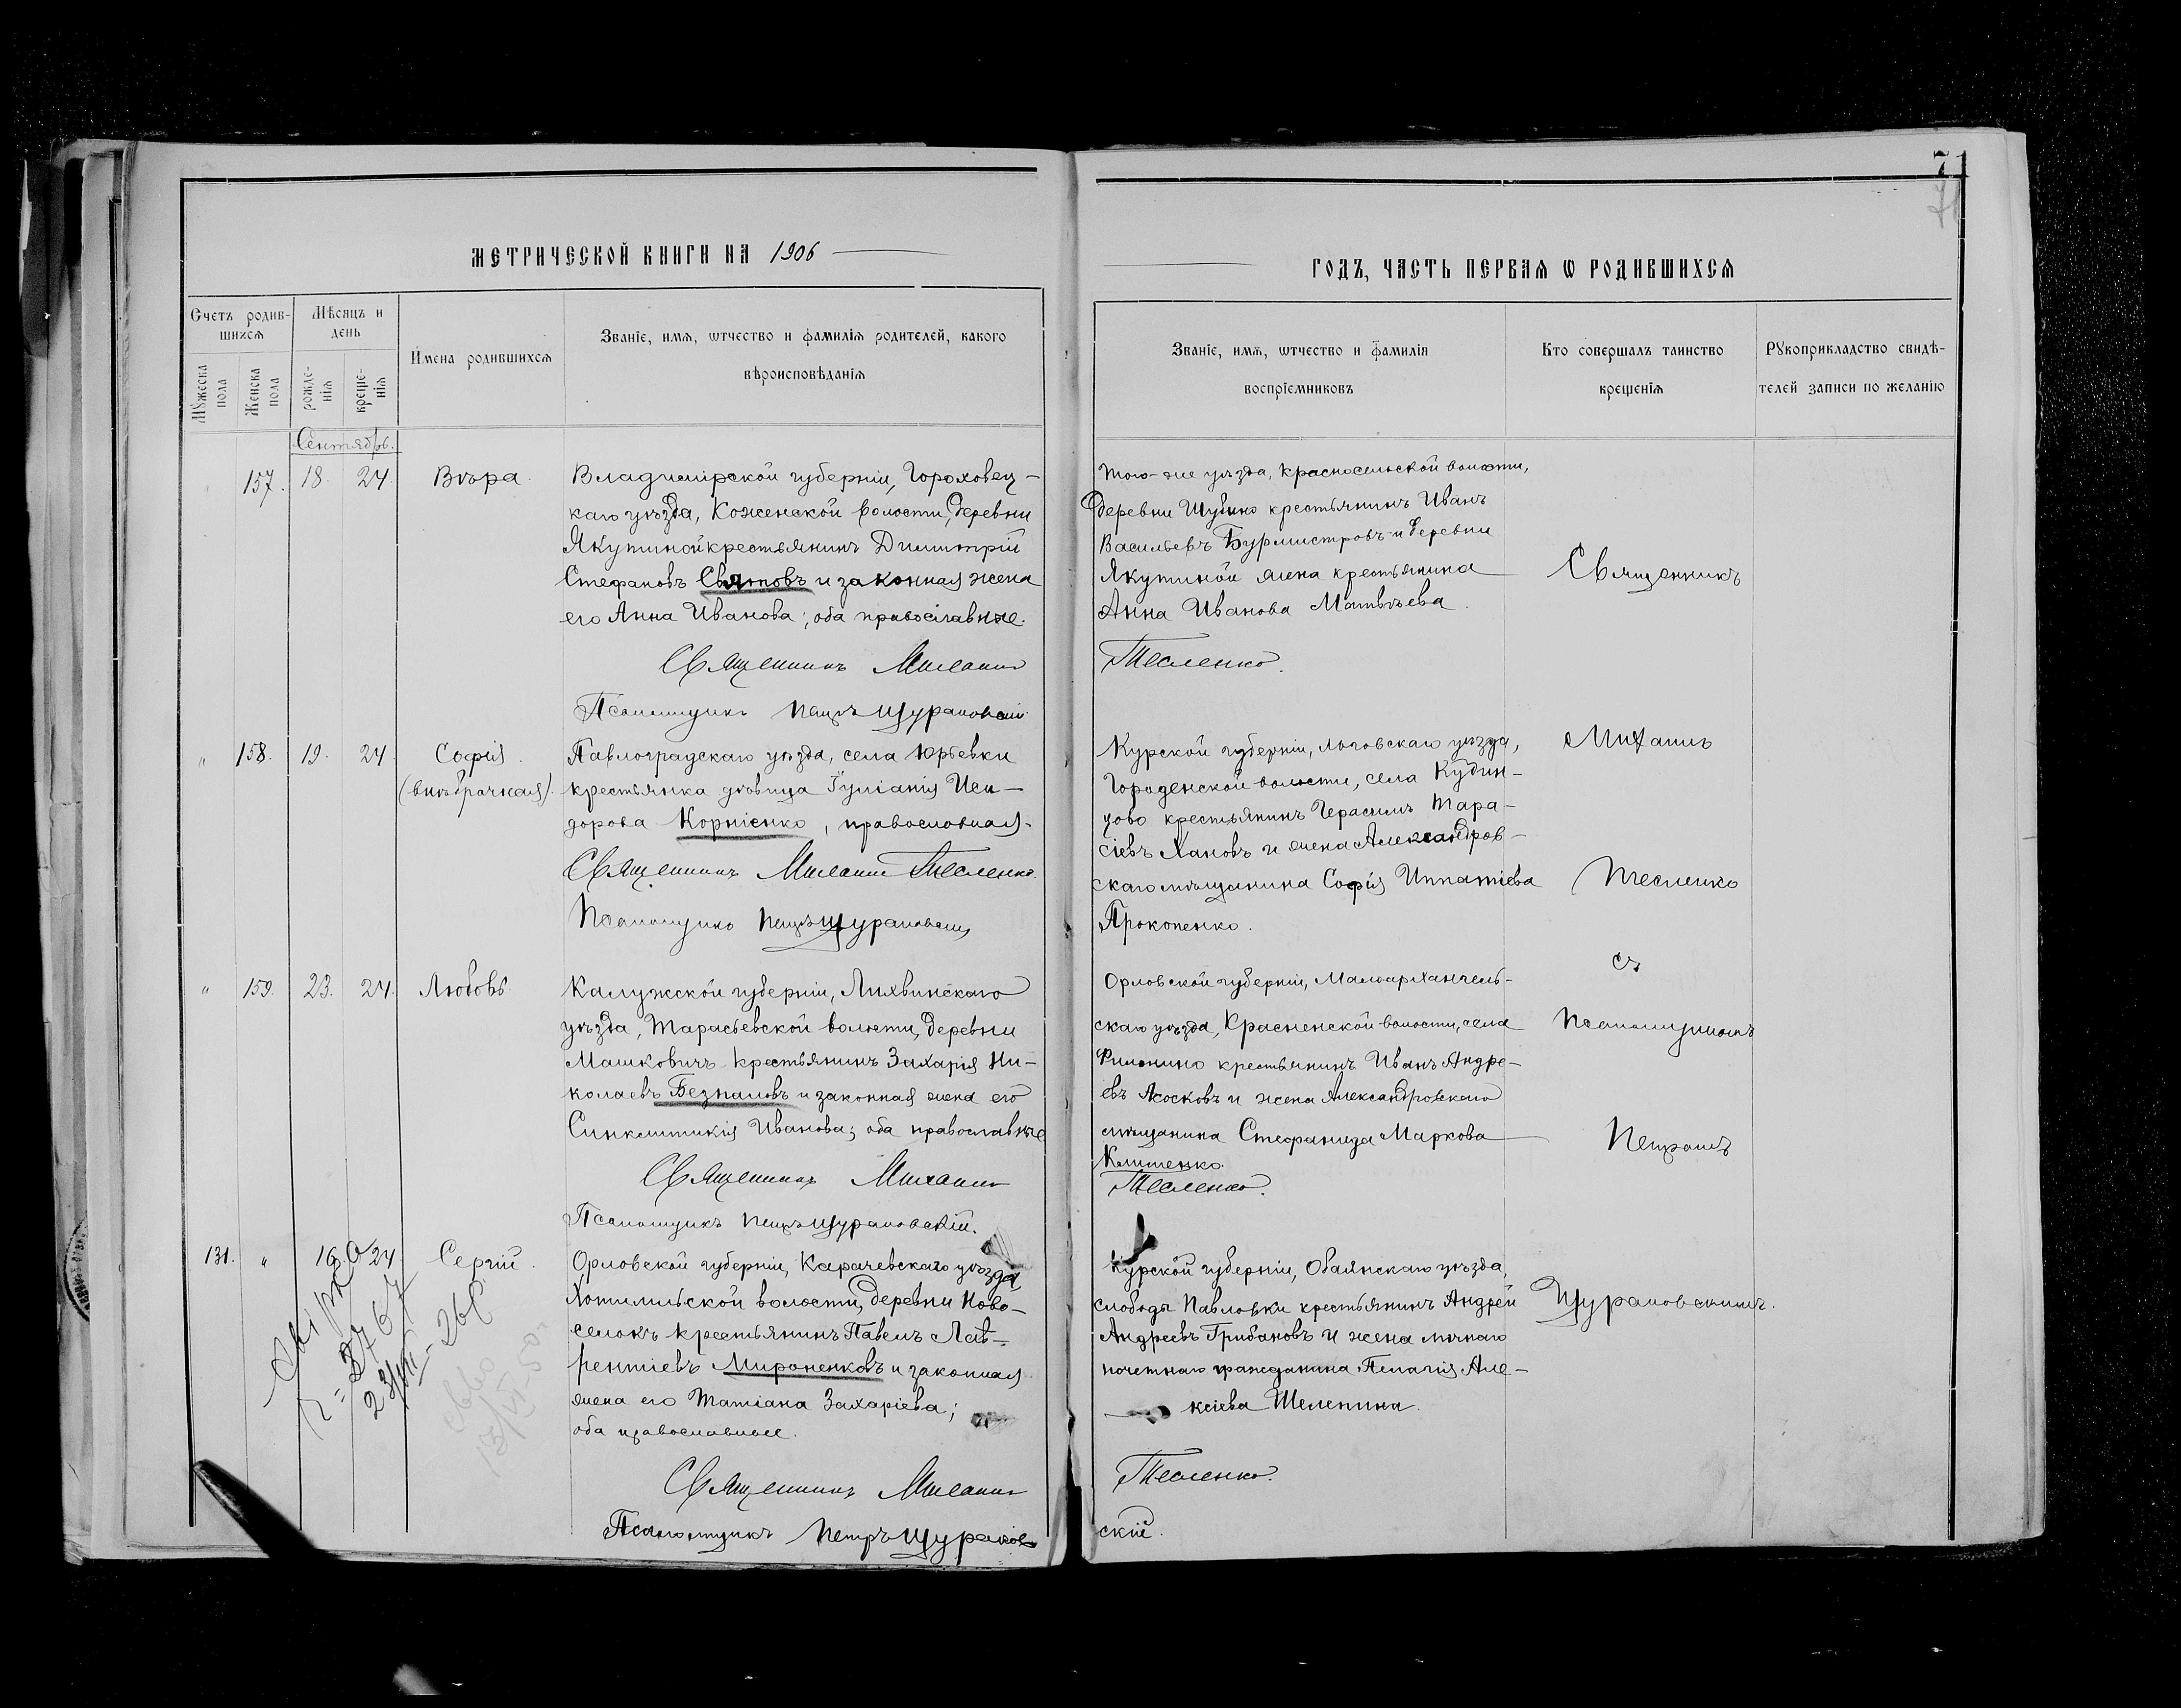 71
71
МЕТРИЧЕСКОЙ КНИГИ НА 1906
ГОДЪ, ЧАСТЬ ПЕРВАЯ Ѡ РОДИВШИХСЯ
Счетъ родив-
шихся
Мѣсяцъ и
день
Имена родившихся
Званіе, имя, ѡтчество и фамилія родителей, какого
вѣроисповѣданія
Мужеска
пола
Женска
пола
рожде-
нія
креще-
нія
Званіе, имя, ѡтчество и фамилія
воспріемниковъ
Кто совершалъ таинство
крещенія
Рукоприкладство свидѣ-
телей записи по желанію
Сентябрь.
157. 18. 24. Вѣра.
Владимірской губерніи, Гороховец-
каго уѣзда, Кожинской волости, деревни
Якутиной крестьянинъ Димитрій
Стефановъ Святовъ и законная жена
его Анна Иванова; оба православные.
Священникъ Михаилъ
Псаломщикъ Петръ Щурановскій
Того-же уѣзда, Красносельской волости,
деревни Шубино крестьянинъ Иванъ
Васильевъ Бурмистровъ и деревни
Якутиной жена крестьянина
Анна Иванова Матвѣева.
Тесленко.
Священникъ
" 158. 19. 24. Софія.
(внѣбрачная).
Павлоградскаго уѣзда, села Юрьевки
крестьянка дѣвица Іуліанія Иси-
дорова Корніенко, православная.
Священникъ Михаилъ Тесленко.
Псаломщикъ Петръ Щурановскій
Курской губерніи, Льговскаго уѣзда,
Городенской волости, села Кудин-
цово крестьянинъ Герасимъ Тара-
сіевъ Хановъ и жена Александров-
скаго мѣщанина Софія Ипатіева
Прокопенко.
Михаилъ
Тесленко
" 159. 23. 24. Любовь.
Калужской губерніи, Лихвинскаго
уѣзда, Тарасьевской волости, деревни
Машковичъ крестьянинъ Захарія Ни-
колаевъ Безпаловъ и законная жена его
Синклитикія Иванова; оба православные
Священникъ Михаилъ
Псаломщикъ Петръ Щурановскій.
Орловской губерніи, Малоархангель-
скаго уѣзда, Красненской волости, села
крестьянинъ Иванъ Андре-
евъ Лосковъ и жена Александровскаго
мѣщанина Стефанида Маркова
Тесленко.
съ
Псаломщикомъ
Петромъ
131. " 16. 24. Сергій.
Орловской губерніи, Карачевскаго уѣзда
Хотимльской волости, деревни Ново-
селокъ крестьянинъ Павелъ Лав-
рентіевъ Мироненковъ и законная
жена его Татіана Захаріева;
оба православные.
Священникъ Михаилъ
Псаломщикъ Петръ Щуранов
Курской губерніи, Обаянскаго уѣзда,
слободы Павловки крестьянинъ Андрей
Андреевъ Грибановъ и жена личнаго
почетнаго гражданина Пелагія Але-
ксіева Шелепина.
Тесленко.
скій.
Щурановскимъ.